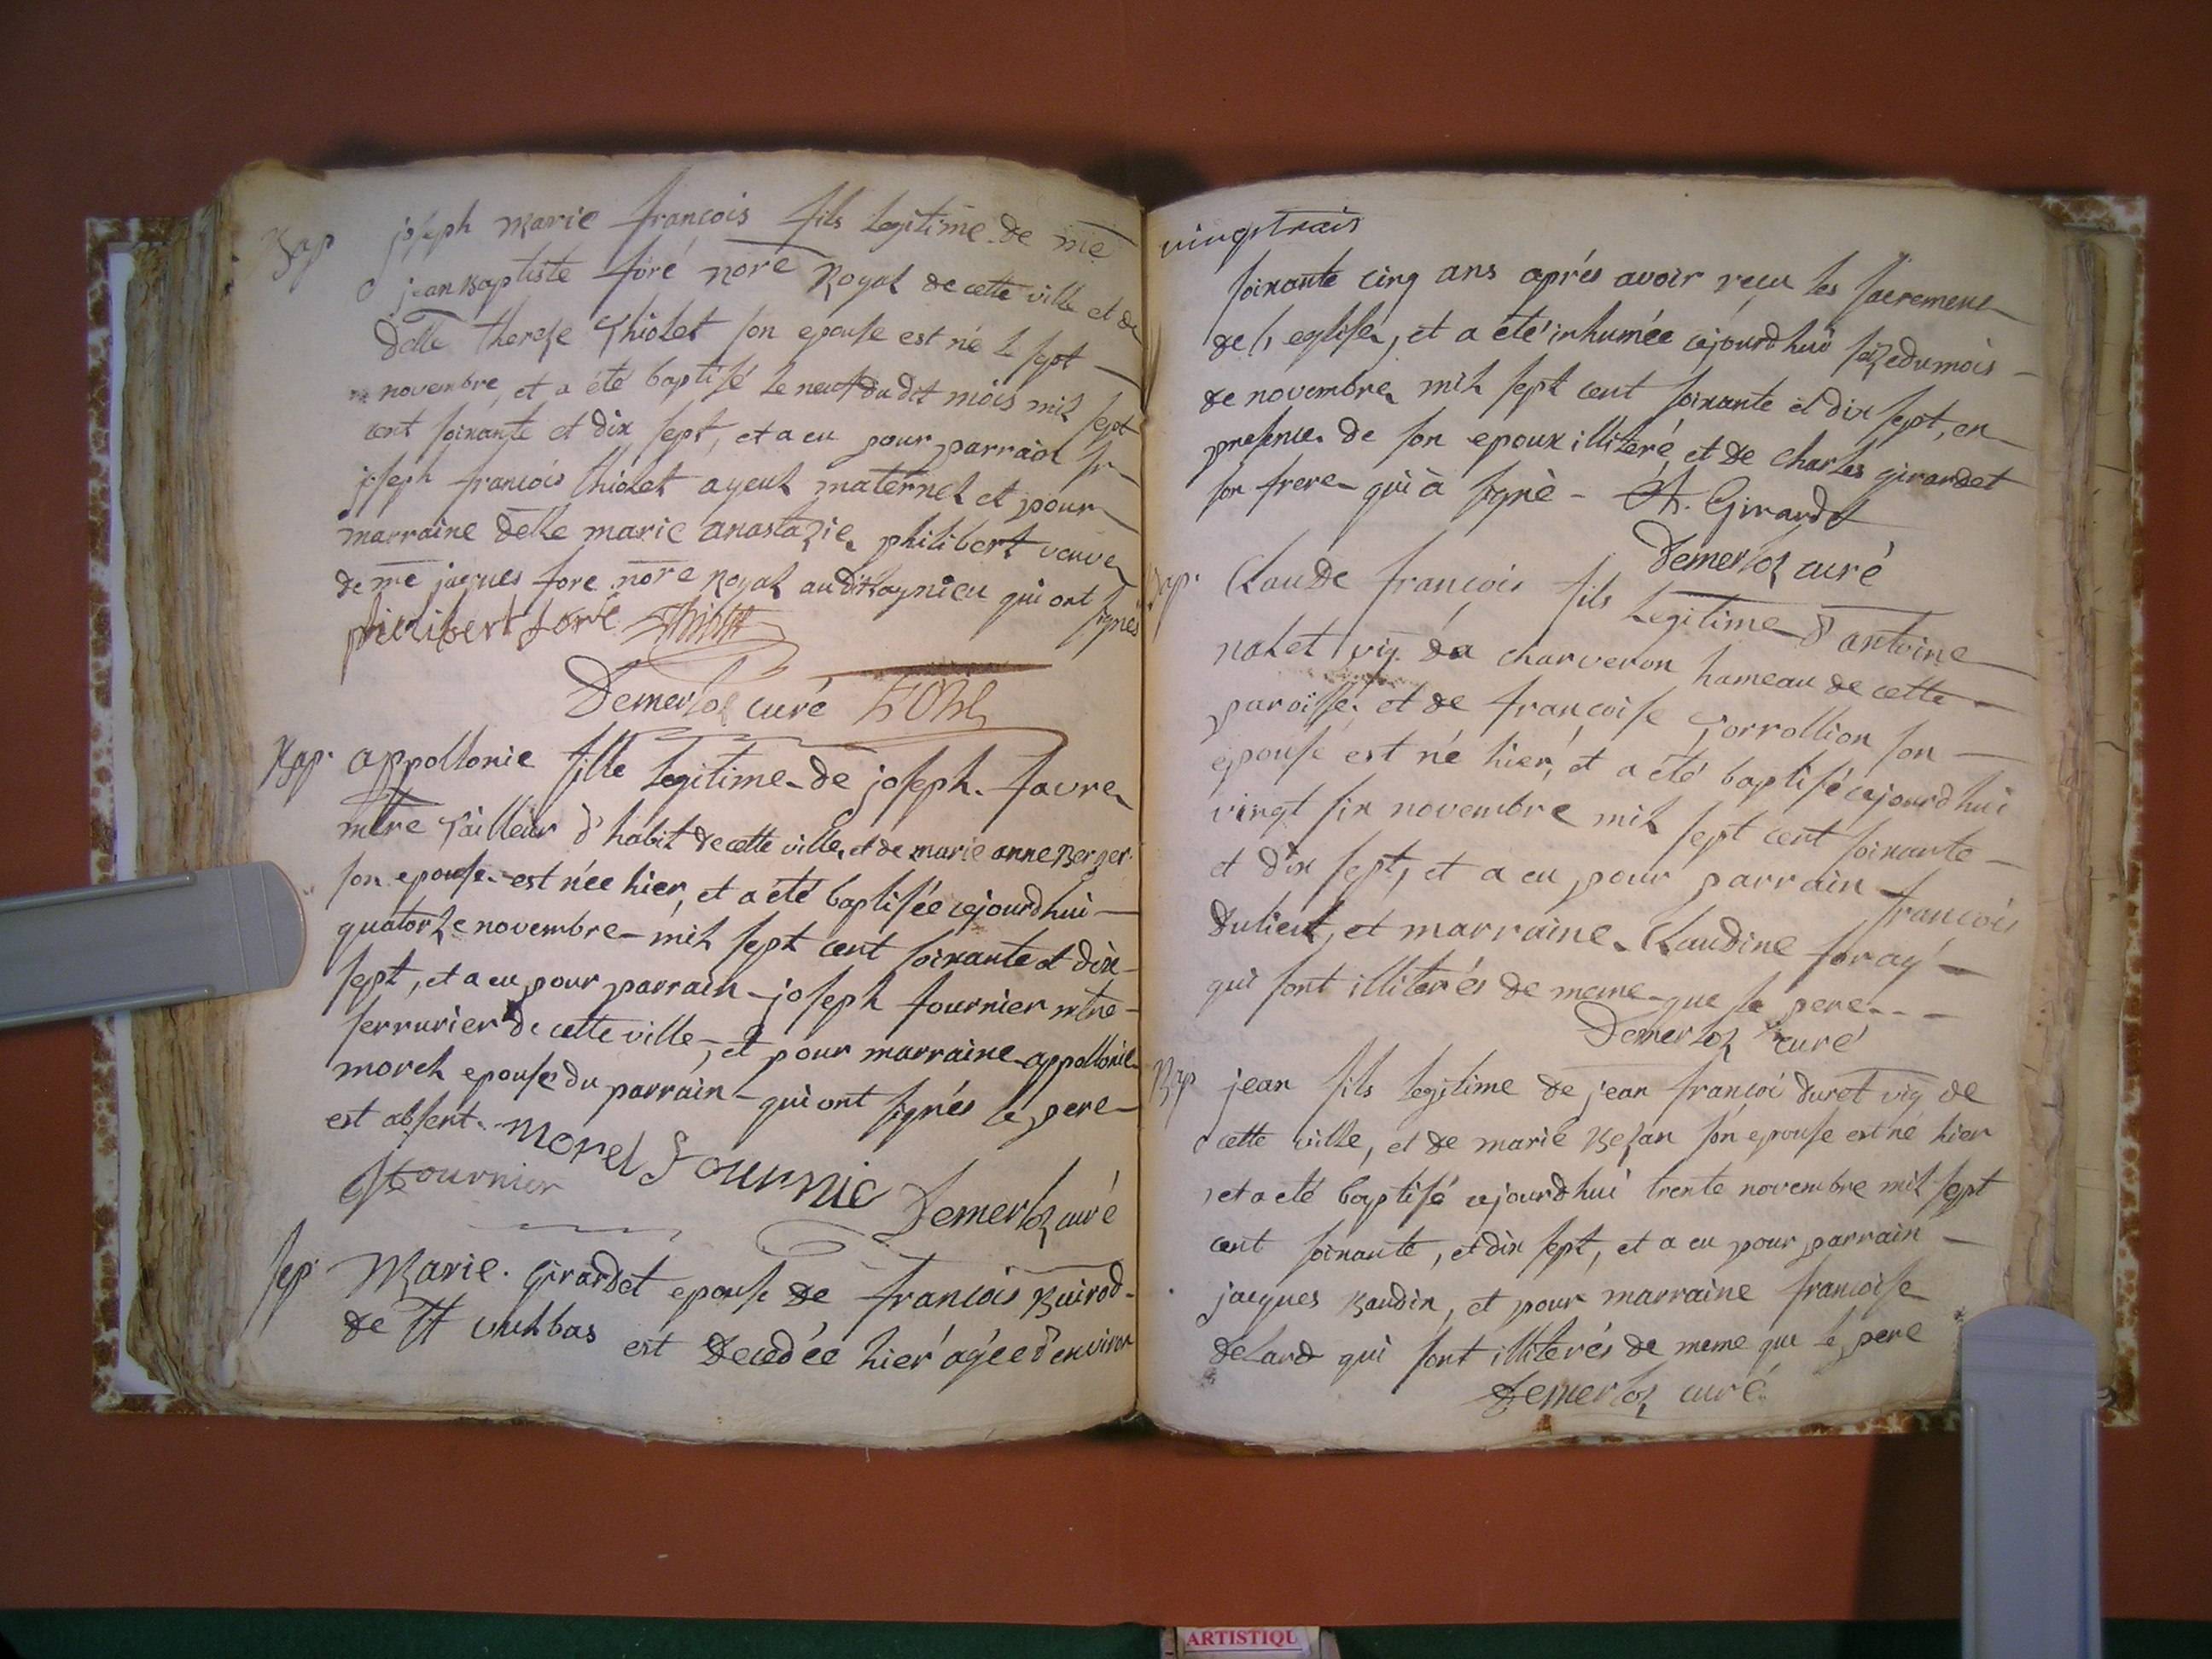 Bap joseph marie françois fils legitime de me
jean baptiste foré nore Royal de cette ville et de
delle therese Thiolet son epouse est né le sept
novembre, et a été baptisé le neuf dudit mois mil sept
cent soixante et dix sept, et a eu pour parrain sr
joseph françois thiolet ayeul maternel et pour
marraine delle marie anastazie philibert veuve
de me jaques fore nore royal audit Lagnieu qui ont signés
philibert foré Thiolet
Demerloz curé foré
Bap. appollonie fille legitime de joseph favre
mtre Tailleur d'habit de cette ville, et de marie anne Berger
son epouse est née hier, et a été baptisée cejourdhui
quatorze novembre mil sept cent soixante et dix
sept, et a eu pour parrain joseph fournier mtre
serrurier de cette ville, et pour marraine appollonie
morel epouse du parrain qui ont signés le pere
est absent. morel fournie
fournier Demerloz curé
sep. Marie Girardet epouse de françois Buirod
de St vulbas est decedée hier agée d'environ
vingt trois
soixante cinq ans aprés avoir reçu les sacremens
de l'eglise, et a été inhumée cejourdhui seize du mois
de novembre mil sept cent soixante et dix sept, en
presence de son epoux illiteré, et de charles girardet
son frere qui à signé - Ch. Girardet
Demerloz curé
Bap. Claude françois fils legitime d'antoine
nalet vig. de charveron hameau de cette
paroisse, et de françoise Gorrollion son
epouse est né hier, et a été baptisé cejourdhui
vingt six novembre mil sept cent soixante
et dix sept, et a eu pour parrain françois
dulieut, et marraine Claudine foray
qui sont illiterés de meme que le pere
Demerloz curé
Bap jean fils legitime de jean françoi duret vig de
cette ville, et de marie Besan son epouse est né hier
et a été baptisé cejourdhui trente novembre mil sept
cent soixante, et dix sept, et a eu pour parrain
jacques Baudin, et pour marraine françoise
delard qui sont illiterés de meme que le pere
Demerloz curé
ARTISTIQU